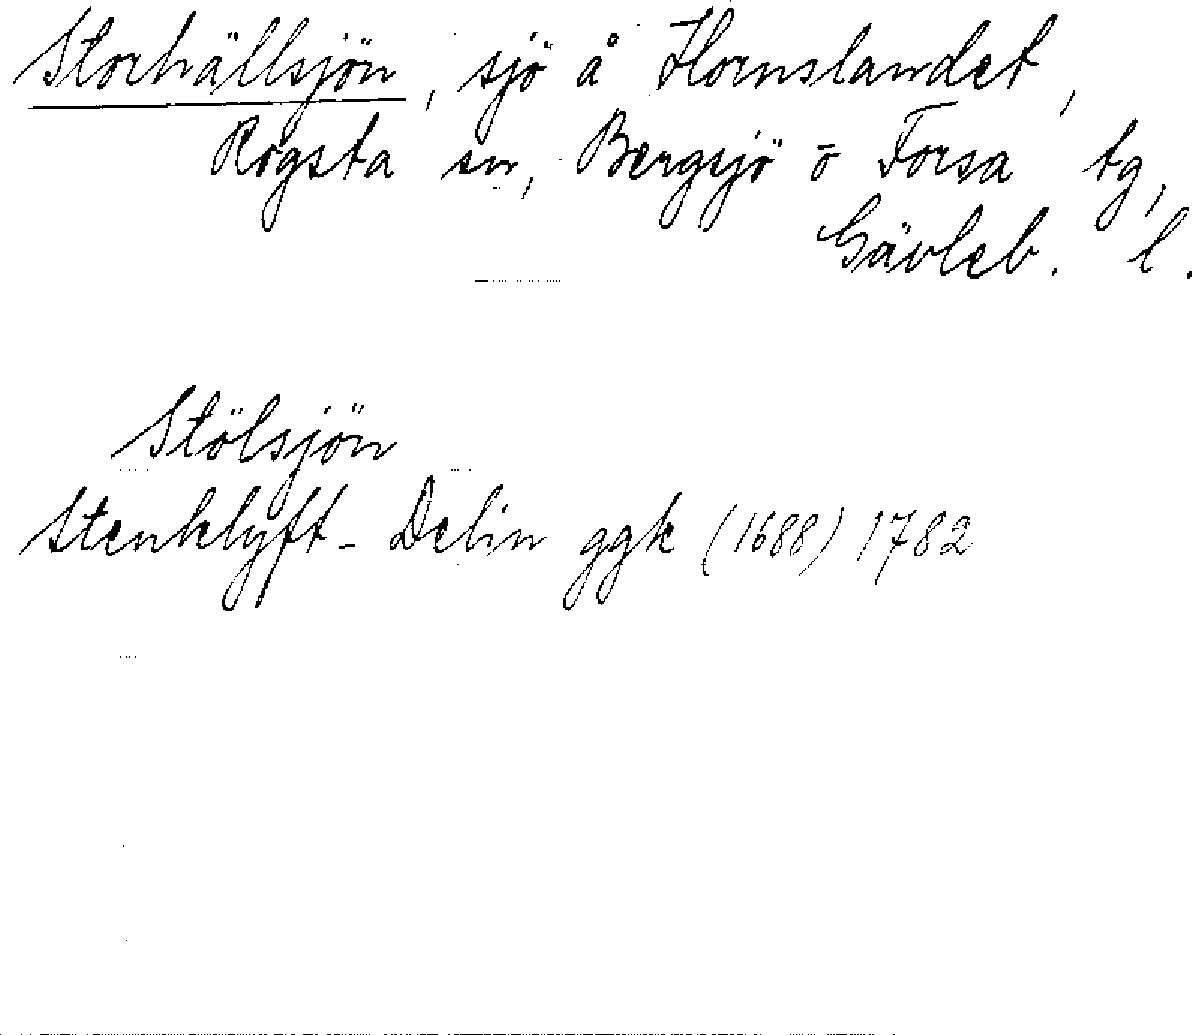 Storhällsjön, sjö å Hornslandet,
Rogsta sn, Bergsjö o Forsa tg,
Gävleb. l.
Stölsjön
Stenklyft - Delin ggk (1688) 1782